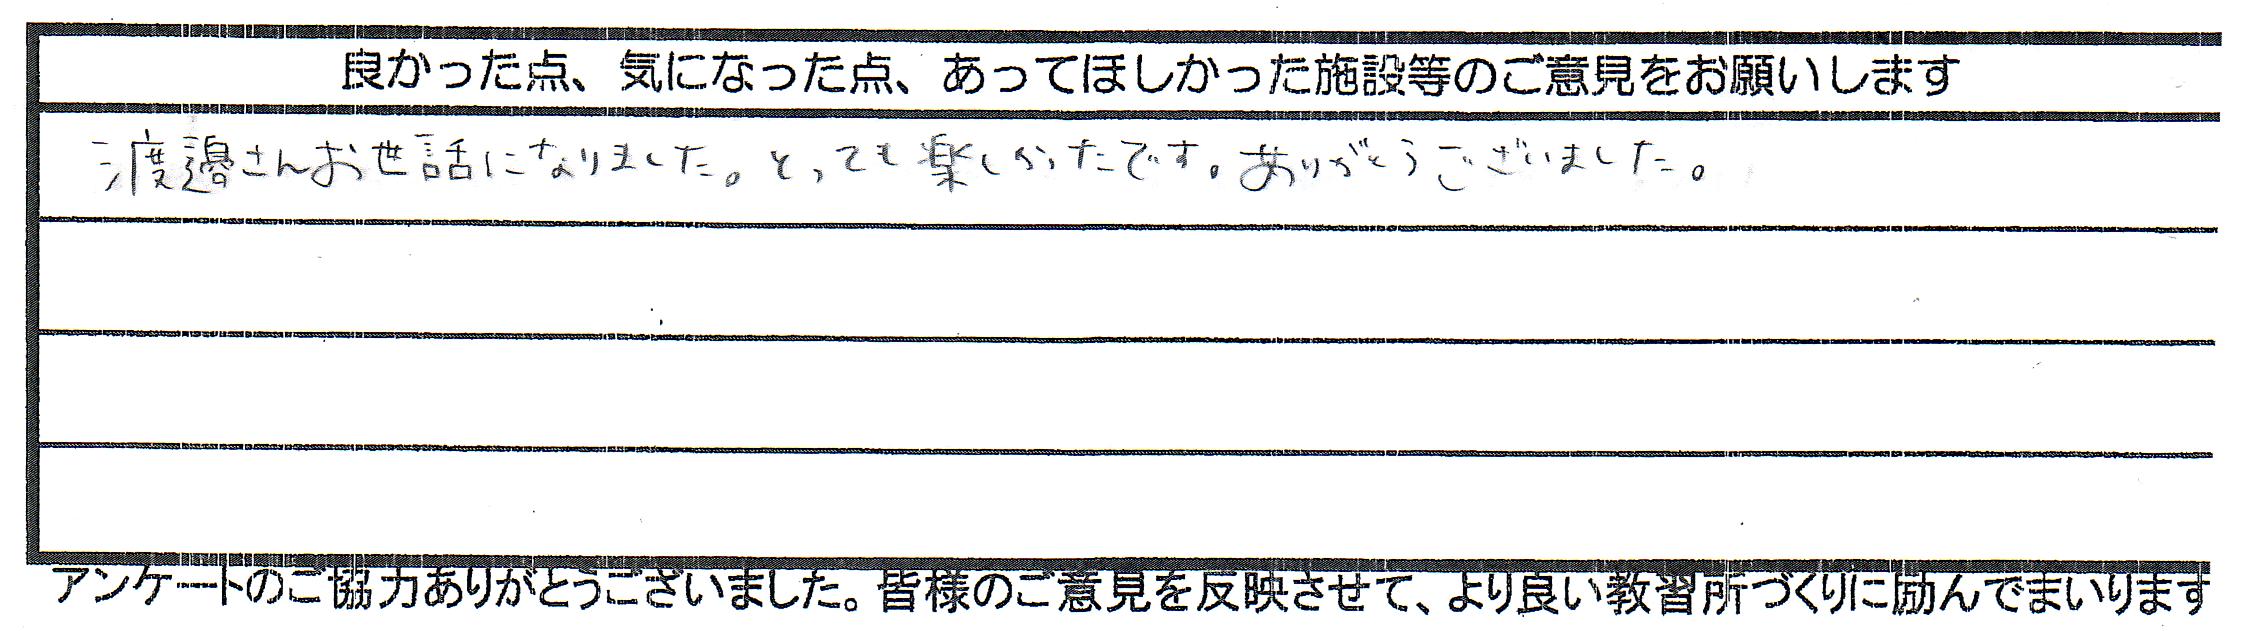 良かった点、気になった点、あってほしかった施設等のご意見をお願いします
渡邊さんお世話になりました。とっても楽しかったです。ありがとうございました。
アンケートのご協力ありがとうございました。皆様のご意見を反映させて、より良い教習所づくりに励んでまいります